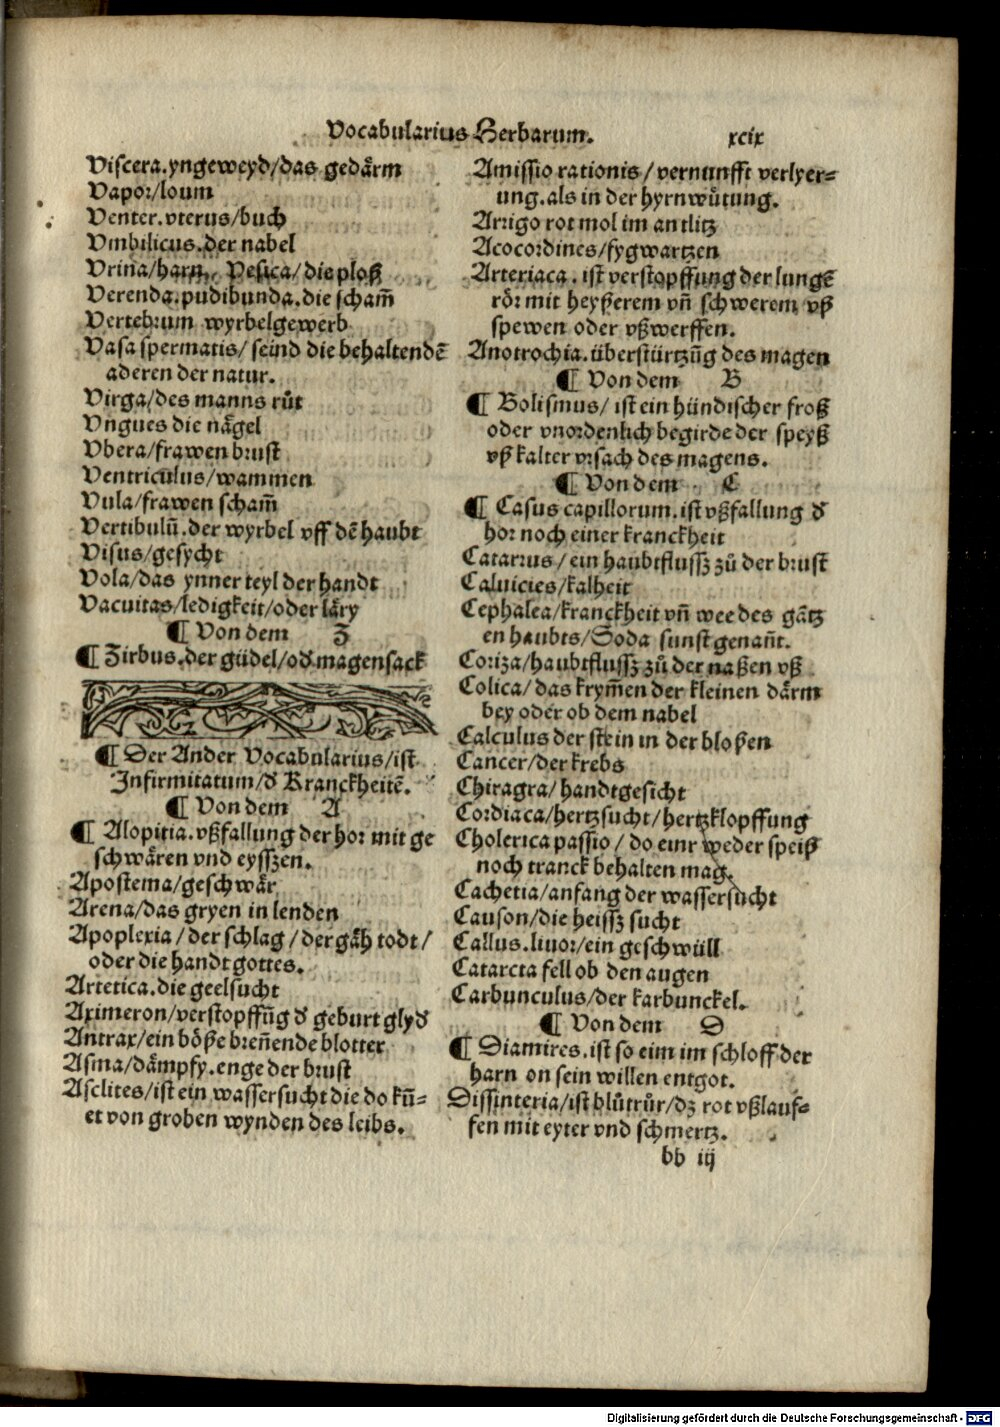 Vocabularius Herbarum. xcix
Viscera.yngeweyd/das gedaͤrm
Vapor/loum
Venter.vterus/buch
Vmbilicus.der nabel
Vrina/harn. Vesica/die ploß
Verenda.pudibunda.die scham̄
Vertebrum wyrbelgewerb
Vasa spermatis/ seind die behaltendē
aderen der natur.
Virga/des manns růt
Vngues die naͤgel
Vbera/frawen brust
Ventriculus/wammen
Vula/frawen scham̄
Vertibulū.der wyrbel vff dē haubt
Visus/gesycht
Vola/das ynner teyl der handt
Vacuitas/ledigkeit/oder laͤry
¶ Von dem Z
¶ Zirbus.der güdel/oď magensack
¶ Der Ander Vocabularius/ist
Infirmitatum/ď Kranckheitē.
¶ Von dem A
¶ Alopitia.vßfallung der hor mit ge
schwaͤren vnd eysszen.
Apostema/geschwaͤr
Arena/das gryen in lenden
Apoplexia/der schlag/der gaͤh todt/
oder die handt gottes.
Artetica.die geelsucht
Aximeron/verstopffūg ď geburt glyď
Antrax/ein boͤße breñende blotter
Asma/daͤmpfy.enge der brust
Asclites/ist ein wassersucht die do kū=
et von groben wynden des leibs.
Amissio rationis/vernunfft verlyer=
ung.als in der hyrnwuͤtung.
Arrigo rot mol im antlitz
Acocordines/fygwartzen
Arteriaca. ist verstopffung der lungē
roͤr mit heyßerem vñ schwerem vß
spewen oder vßwerffen.
Anotrochia.überstürtzūg des magen
¶ Von dem B
¶ Bolismus/ ist ein hündischer froß
oder vnordenlich begirde der speyß
vß kalter vrsach des magens.
¶ Von dem C
¶ Casus capillorum.ist vßfallung ď
hor noch einer kranckheit
Catarrus/ein haubtflussz zů der brust
Caluicies/kalheit
Cephalea/kranckheit vñ wee des gātz
en haubts/Soda sunst genañt.
Coriza/haubtflussz zů der naßen vß
Colica/das krym̄en der kleinen daͤrm
bey oder ob dem nabel
Calculus der stein in der bloßen
Cancer/der krebs
Chiragra/handtgesicht
Cordiaca/hertzsucht/hertzklopffung
Cholerica passio/ do einr weder speiß
noch tranck behalten mag.
Cachetia/anfang der wassersucht
Causon/die heissz sucht
Callus.liuor/ein geschwüll
Catarcta fell ob den augen
Carbunculus/der karbunckel.
¶ Von dem D
¶ Diamires.ist so eim im schloff der
harn on sein willen entgot.
Dissinteria/ist blůtrůr/dz rot vßlauf=
fen mit eyter vnd schmertz.
bb iij
Digitalisierung gefördert durch die Deutsche Forschungsgemeinschaft - DFG